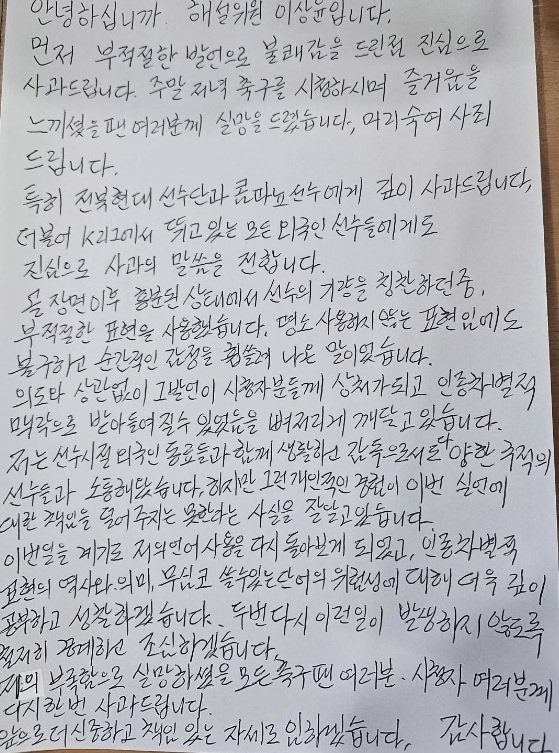 안녕하십니까. 해설위원 이상윤입니다.
먼저 부적절한 발언으로 불쾌감을 드린점 진심으로
사과드립니다. 주말 저녁 축구를 시청하시며 즐거움을
느끼셨을 팬 여러분께 실망을 드렸습니다, 머리숙여 사죄
드립니다.
특히 전북현대 선수단과 콤파뇨선수에게 깊이 사과드립니다,
더불어 K리그에서 뛰고있는 모든 외국인 선수들에게도
진심으로 사과의 말씀을 전합니다.
골 장면이후 흥분된 상태에서 선수의 기량을 칭찬하던중,
부적절한 표현을 사용했습니다. 평소 사용하지 않는 표현임에도
불구하고 순간적인 감정을 휩쓸려 나온 말이었습니다.
의도와 상관없이 그발언이 시청자분들께 상처가되고 인종차별적
맥락으로 받아들여질수 있었음을 뼈저리게 깨닫고있습니다.
저는 선수시절 외국인 동료들과 함께 생활하고 감독으로서도 다양한 국적의
선수들과 소통해왔습니다, 하지만 그런개인적인 경험이 이번 실언에
대한 책임을 덜어주지는 못한다는 사실을 잘알고있습니다.
이번일을 계기로 저의언어사용을 다시 돌아보게 되었고, 인종차별적
표현의 역사와 의미, 무심코 쓸수있는단어의 위험성에 대해 더욱 깊이
공부하고 성찰하겠습니다. 두번다시 이런일이 발생하지 않도록
철저히 경계하고 조심하겠습니다.
저의 부족함으로 실망하셨을 모든축구팬 여러분. 시청자 여러분께
다시한번 사과드립니다.
앞으로 더신중하고 책임 있는 자세로 임하겠습니다, 감사합니다